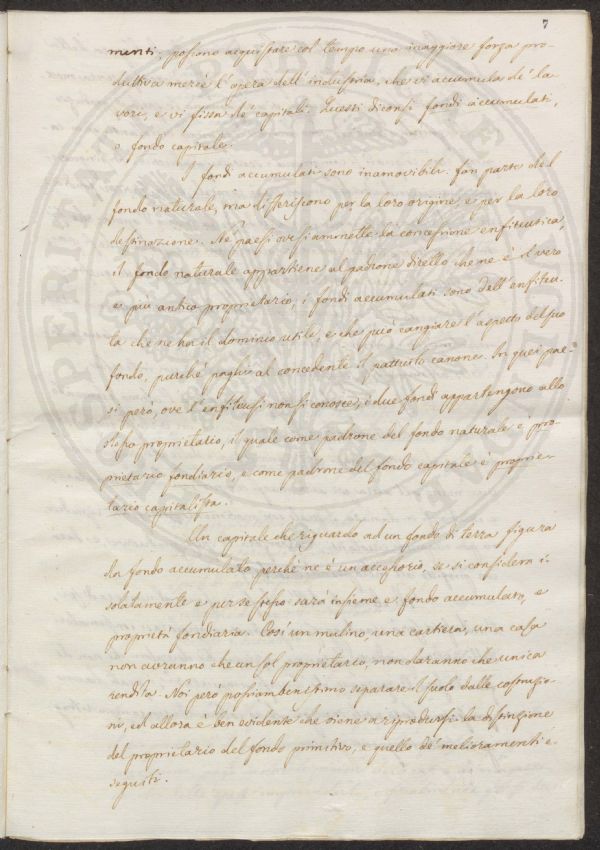 7
menti, possono acquistare col tempo una maggiore forza pro-
duttiva mercè l'opera dell'industria, che vi accumula de' la-
vori, e vi fissa de' capitali. Questi diconsi fondi accumulati,
o fondo capitale.
I fondi accumulati sono inamovibili. fan parte del
fondo naturale, ma differiscono per la loro origine, e per la loro
destinazione. Ne' paesi ove si ammette la concessione enfiteutica,
il fondo naturale appartiene al padrone diretto che ne è il vero
e più antico proprietario, i fondi accumulati sono dell'enfiteu-
ta che ne ha il dominio utile, e che può cangiare l'aspetto del suo
fondo, purchè paghi al concedente il pattuito canone. In quei pae-
si però, ove l'enfiteusi non si conosce, i due fondi appartengono allo
stesso proprietario, il quale come padrone del fondo naturale è pro-
prietario fondiario, e come padrone del fondo capitale è proprie-
tario capitalista.
Un capitale che riguardo ad un fondo di terra figura
da fondo accumulato perchè ne è un accessorio, se si considera i-
solatamente e per se stesso sarà insieme e fondo accumulato, e
proprietà fondiaria. Così un mulino, una cartiera, una casa
non avranno che un sol proprietario, non daranno che unica
rendita. Noi però possiam benissimo separare il suolo dalle costruzio-
ni, ed allora è ben evidente che viene a riprodursi la distinzione
del proprietario del fondo primitivo, e quello de' melioramenti e-
seguiti.
PUBLICAE